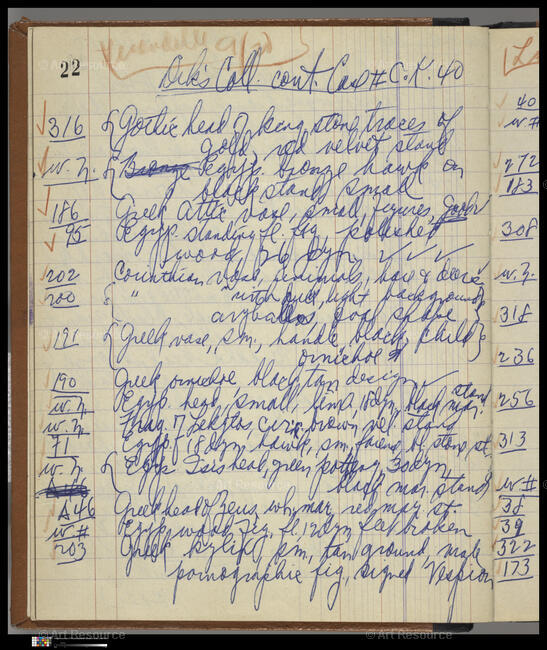 22
Dik's Coll. cont. Case # C. K. 40
316 Gothic head of king stone, traces of
gold, red velvet stand
w. n. Bronze Egyp. bronze hawk on
black stand small
186 Greek Attic vase, small, figures,
95 Egyp. standing fl. fig. polished
wood, 26 Dyn.
202 Corinthian vase, animals, hare & deer
200 " " with bull, light background
aryballos, foot shape
191 Greek vase, sm, handle, black, child
oinichoe
190 Greek oinichoe, black tan design
w. n. Egyp. head, small, lime, 18 dyn, black mar. stand
w. n. Frag. of brown vel. stand
71 Egyp. 18 dyn, hawk, sm, faience, bl. stone st.
w. n. Egyp. Isis head, green pottery, 30 dyn,
black mar. stand
A46 Greek head of Zeus, wh. mar, red mar. st.
w # Egyp. wood fig. fl. 12 dyn feet broken
203 Greek kylix sm, tan ground, male
pornographic fig, signed Vespion
40
w. #
272
183
308
w. n.
318
236
256
313
w #
38
39
322
173
© Art Resource
© Art Resource
© Art Resource
© Art Resource